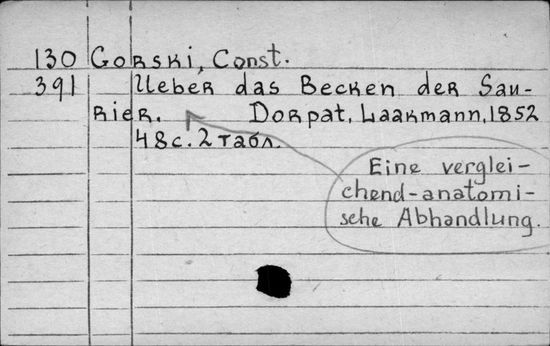 130 Gorski, Const.
391 Ueber das Becken der Sau-
rier. Dorpat, Laakmann, 1852
48с. 2 табл.
Eine verglei-
chend-anatomi-
sche Abhandlung.